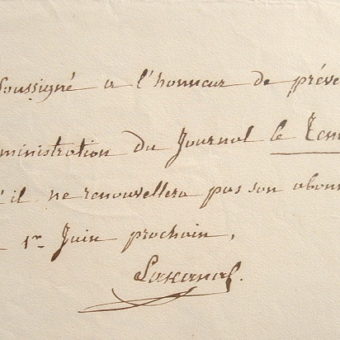 soussigné a l'honneur de préve
ministration du Journal le Tem
il ne renouvellera pas son abonn
1er Juin prochain,
Lakanal.